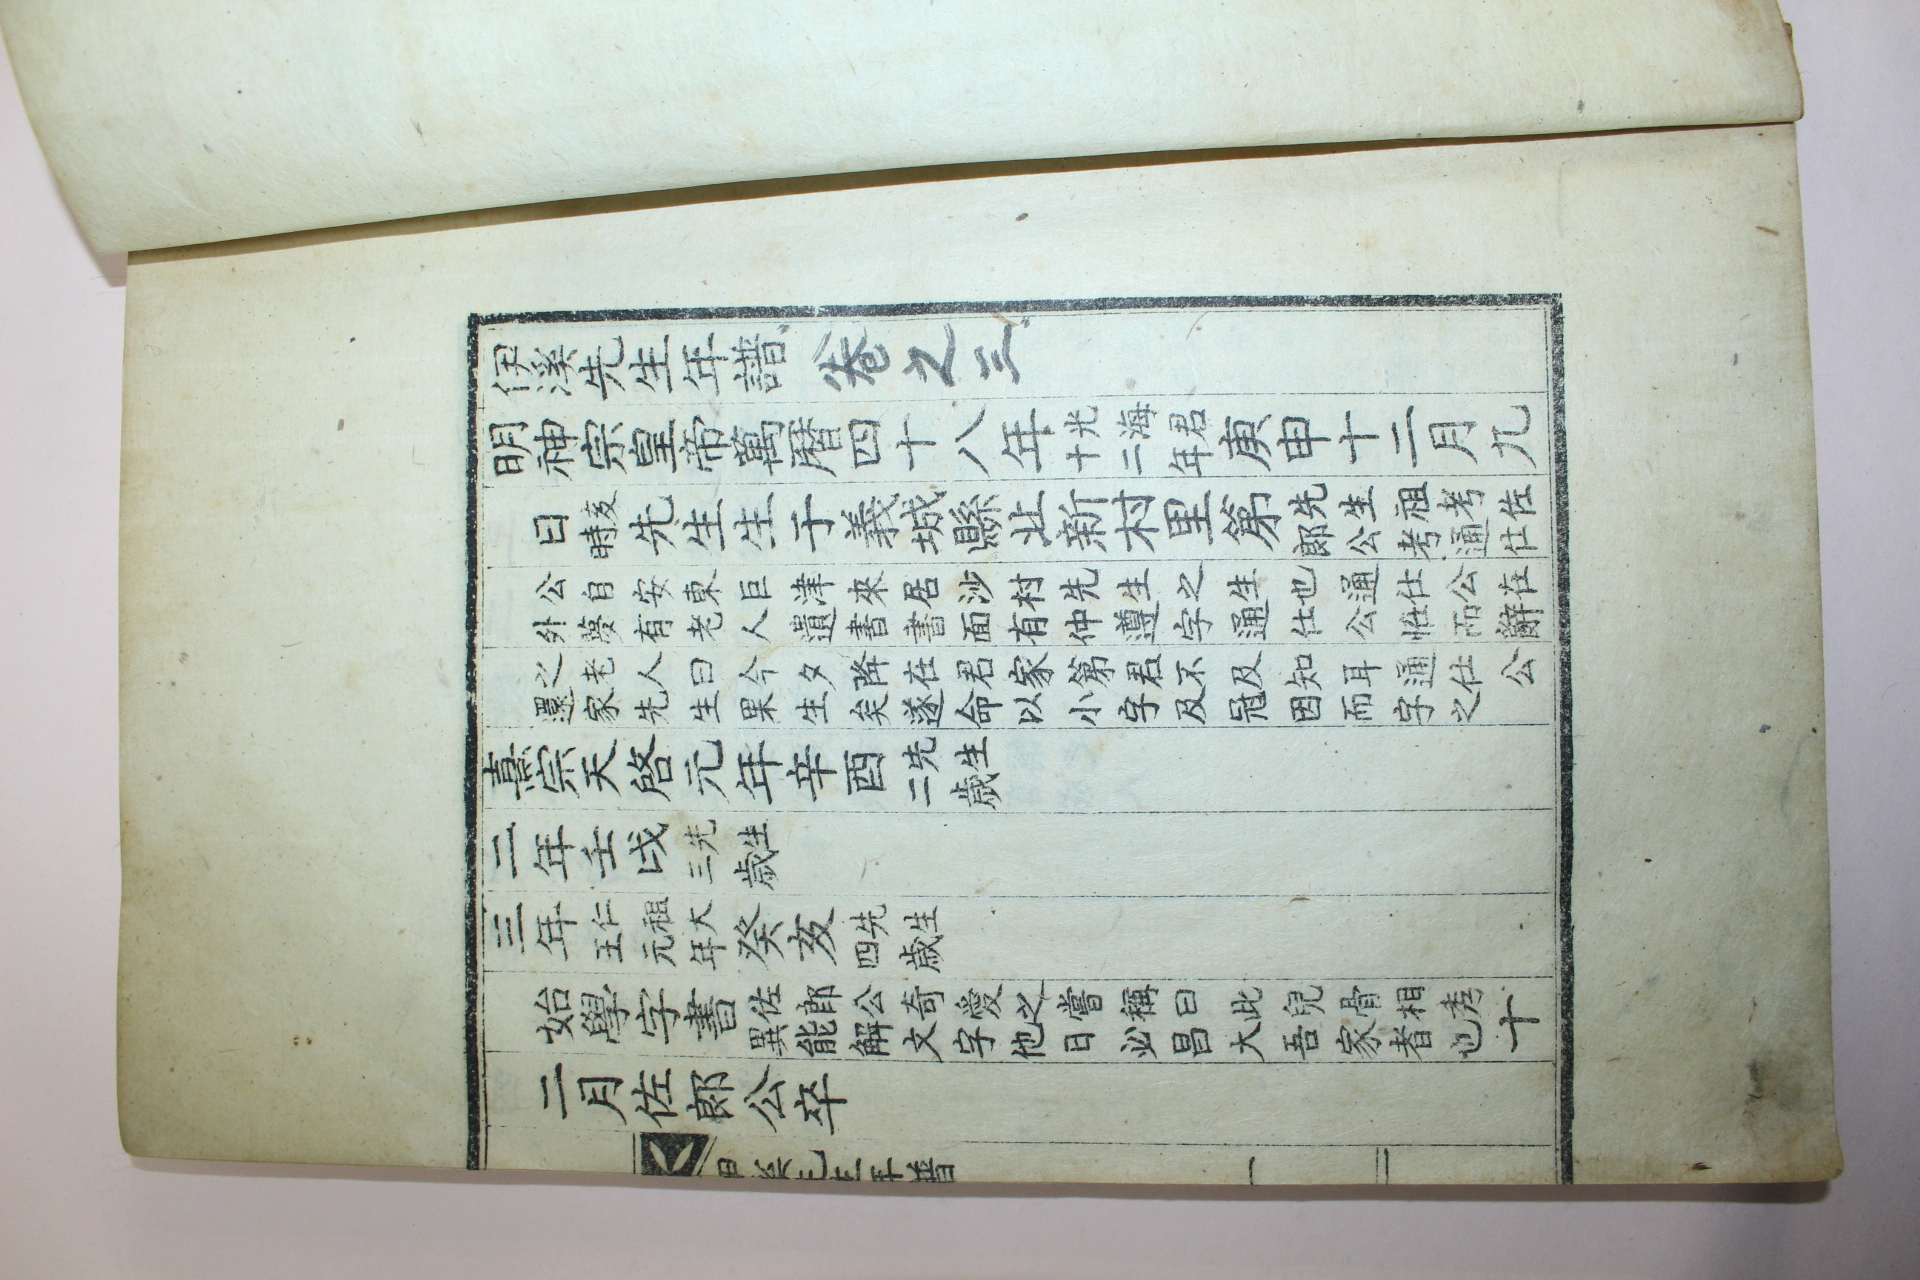 伊溪先生年譜 卷之三
明神宗皇帝萬曆四十八年光海君十二年庚申十二月九
日亥時先生生于義城縣北新村里第先生祖考佐郎公考通仕
公自安東巨津來居沙村先生之生也通仕公在
外夢有老人遺書書面有仲遵字通仕公怪而辭
之老人曰今夕降在君家第君不及知耳通仕公
還家先生果生矣遂命以小字及冠因而字之
熹宗天啓元年辛酉先生二歲
二年壬戌先生三歲
三年仁祖大王元年癸亥先生四歲
始學字書佐郎公奇愛之嘗稱曰此兒骨相秀異能解文字他日必昌大吾家者也十
二月佐郎公卒
先生年譜
一